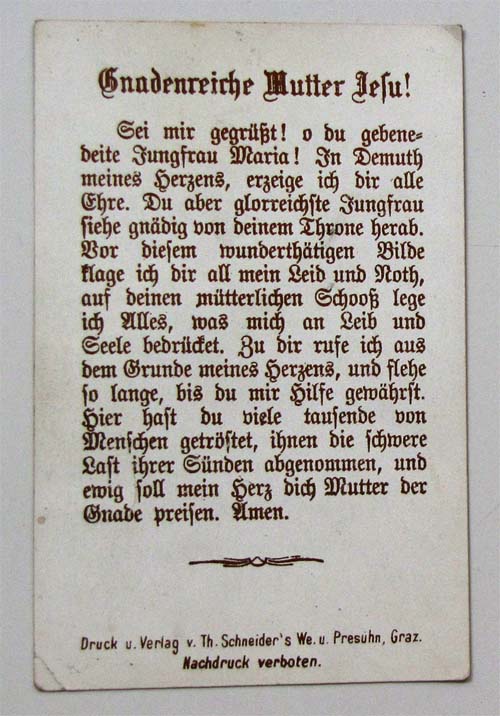 Gnadenreiche Mutter Jesu!
Sei mir gegrüßt! o du gebene-
deite Jungfrau Maria! In Demuth
meines Herzens, erzeige ich dir alle
Ehre. Du aber glorreichste Jungfrau
siehe gnädig von deinem Throne herab.
Vor diesem wunderthätigen Bilde
klage ich dir all mein Leid und Noth,
auf deinen mütterlichen Schooß lege
ich Alles, was mich an Leib und
Seele bedrücket. Zu dir rufe ich aus
dem Grunde meines Herzens, und flehe
so lange, bis du mir Hilfe gewährst.
Hier hast du viele tausende von
Menschen getröstet, ihnen die schwere
Last ihrer Sünden abgenommen, und
ewig soll mein Herz dich Mutter der
Gnade preisen. Amen.
Druck u. Verlag v. Th. Schneider's We. u. Presuhn, Graz.
Nachdruck verboten.